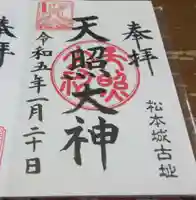 奉拝
松本城古址
天照大神
令和五年一月二十日
奉拝